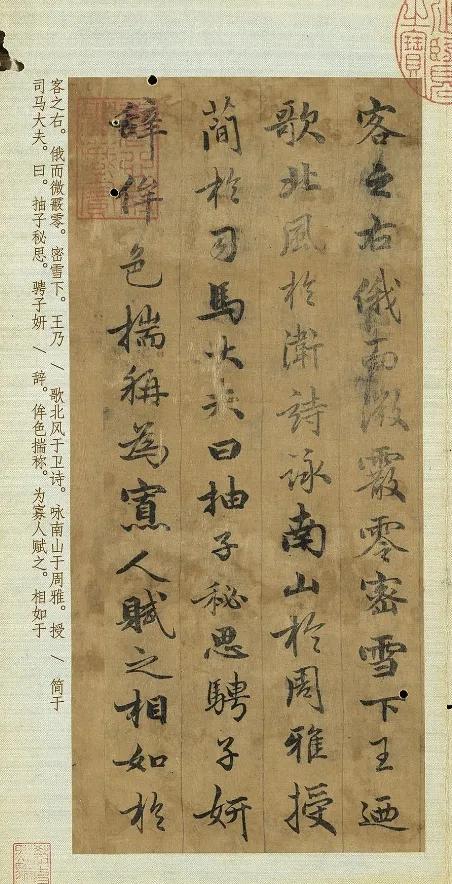 客之右俄而微霰零密雪下王迺
歌北風於衛詩詠南山於周雅授
簡於司馬大夫曰抽子秘思騁子妍
辭侔色揣稱為寡人賦之相如於
客之右。俄而微霰零。密雪下。王乃 \ 歌北风于卫诗。咏南山于周雅。授 \ 简于
司马大夫。曰。抽子秘思。骋子妍 \ 辞。侔色揣称。为寡人赋之。相如于